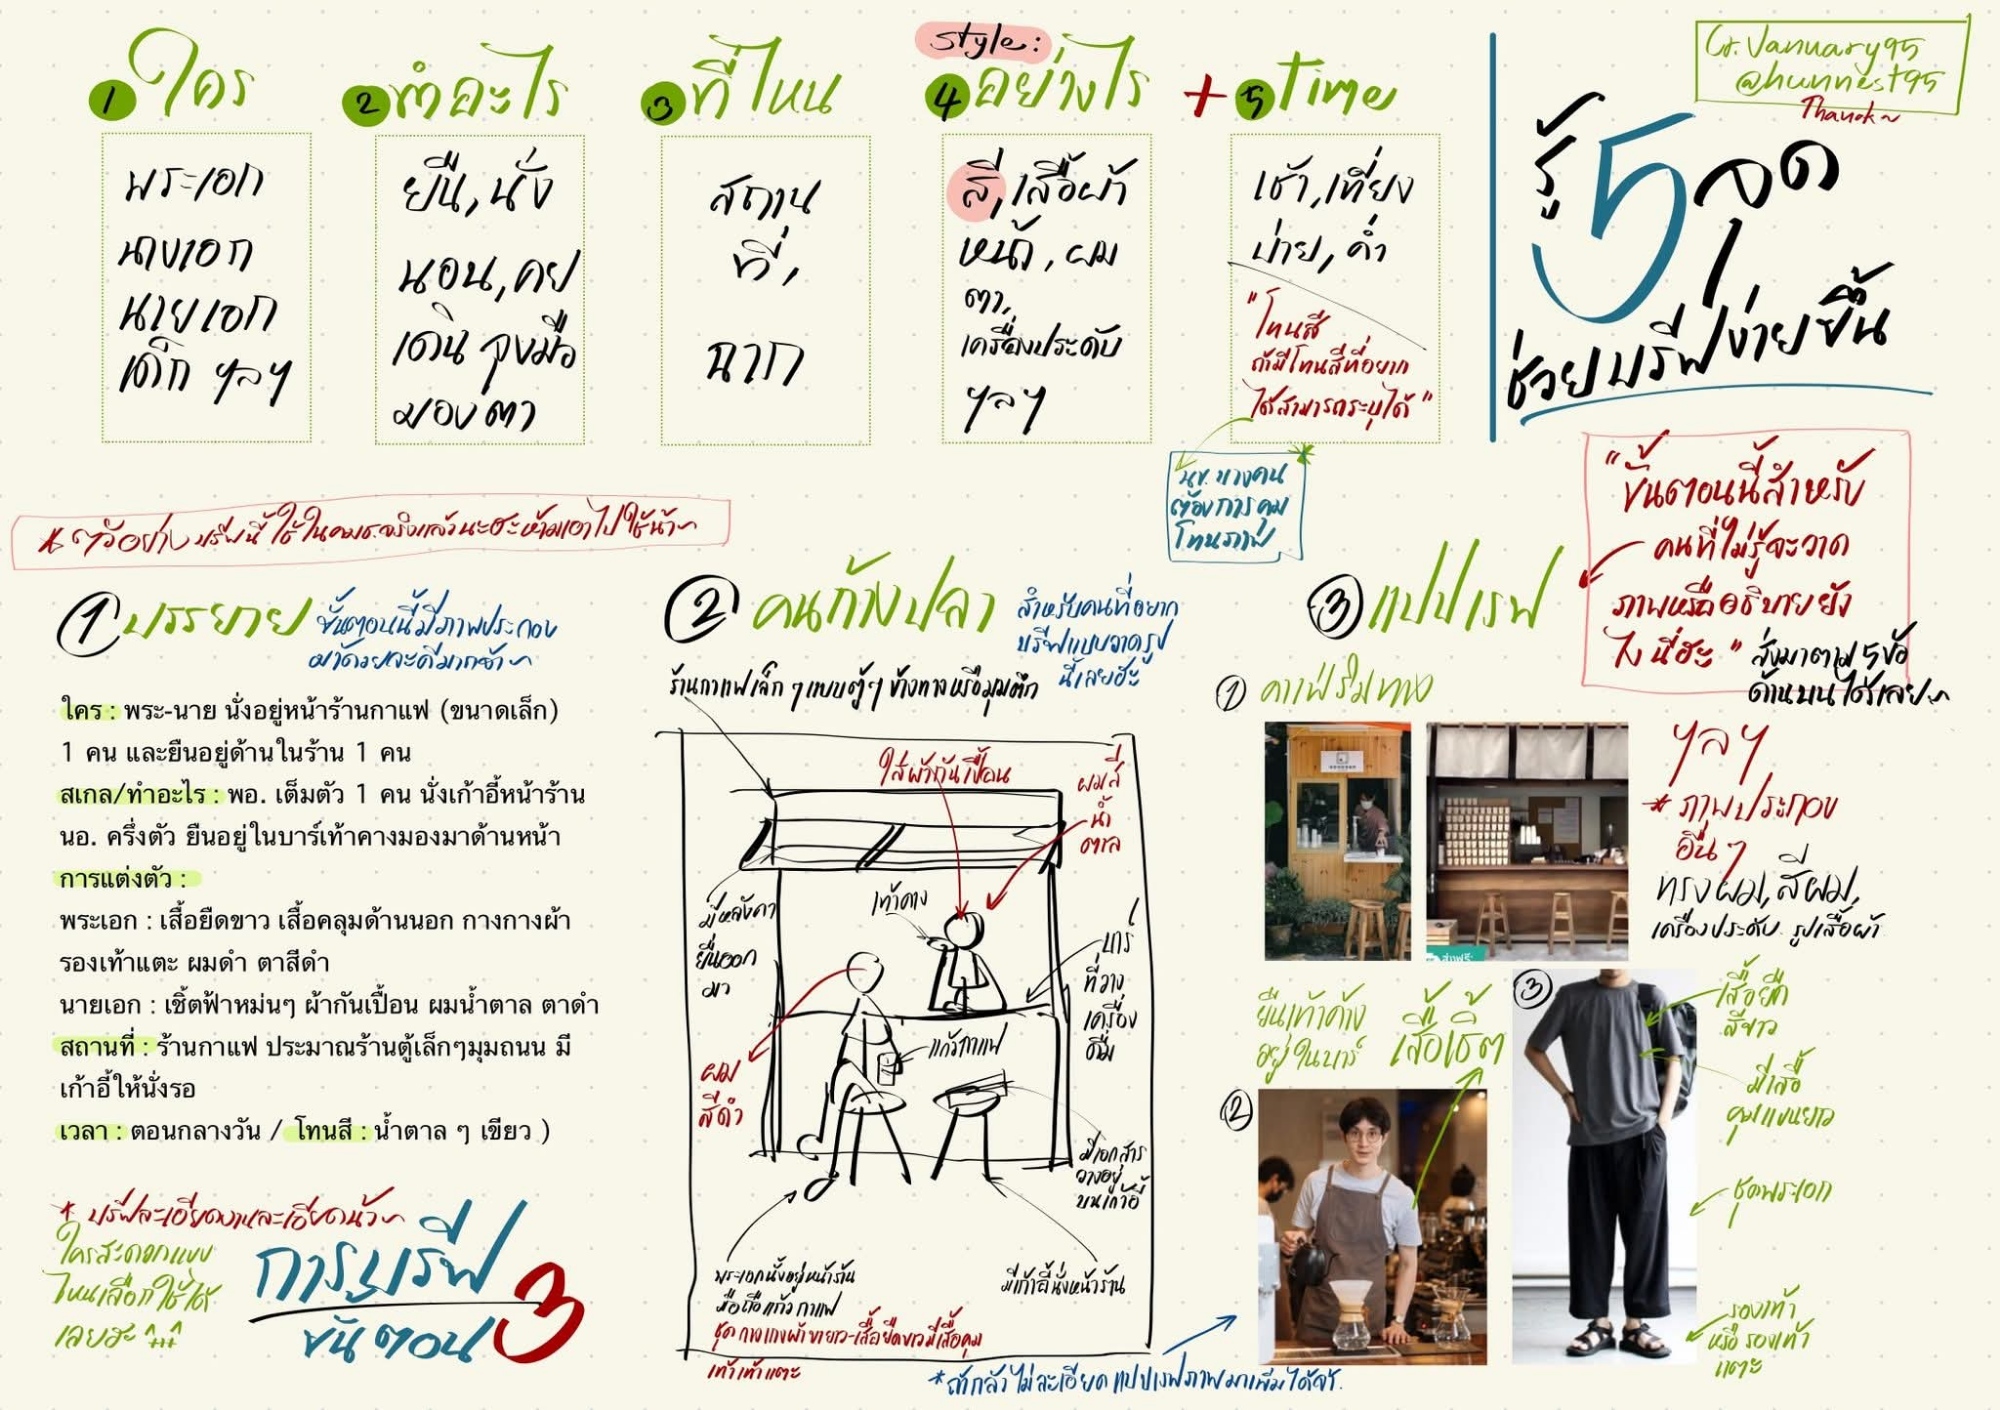 1 ใคร
พระเอก
นางเอก
นายเอก
เด็ก ฯลฯ
2 ทำอะไร
ยืน, นั่ง
นอน, คุย
เดิน จูงมือ
มองตา
3 ที่ไหน
สถาน
ที่,
ฉาก
style:
4 อย่างไร
สี, เสื้อผ้า
หน้า, ผม
ตา,
เครื่องประดับ
ฯลฯ
+ 5 Time
เช้า, เที่ยง
บ่าย, ค่ำ
"โทนสี
ถ้ามีโทนสีที่อยาก
ได้สามารถระบุได้"
นข. บางคน
ต้องการคุม
โทนภาพ
Cr. January95
@hunnest95
Thank~
รู้ 5 จุด
ช่วยบรีฟง่ายขึ้น
"ขั้นตอนนี้สำหรับ
คนที่ไม่รู้จะวาด
ภาพหรืออธิบายยัง
ไงนี่ฮะ" ส่งมาตาม 5 ข้อ
ด้านบนได้เลย~
* ตัวอย่างบรีฟนี้ใช้ในคมช.จริงแล้วนะฮะห้ามเอาไปใช้น้า~
1 บรรยาย
ขั้นตอนนี้มีภาพประกอบ
มาด้วยจะดีมากจ้า~
ใคร : พระ-นาย นั่งอยู่หน้าร้านกาแฟ (ขนาดเล็ก)
1 คน และยืนอยู่ด้านในร้าน 1 คน
สเกล/ทำอะไร : พอ. เต็มตัว 1 คน นั่งเก้าอี้หน้าร้าน
นอ. ครึ่งตัว ยืนอยู่ในบาร์เท้าคางมองมาด้านหน้า
การแต่งตัว :
พระเอก : เสื้อยืดขาว เสื้อคลุมด้านนอก กางกางผ้า
รองเท้าแตะ ผมดำ ตาสีดำ
นายเอก : เชิ้ตฟ้าหม่นๆ ผ้ากันเปื้อน ผมน้ำตาล ตาดำ
สถานที่ : ร้านกาแฟ ประมาณร้านตู้เล็กๆมุมถนน มี
เก้าอี้ให้นั่งรอ
เวลา : ตอนกลางวัน / โทนสี : น้ำตาล ๆ เขียว )
* บรีฟละเอียดงานละเอียดน้า~
ใครสะดวกแบบ
ไหนเลือกใช้ได้
เลยฮะ ^^
การบรีฟ
3 ขั้นตอน
2 คนก้างปลา
สำหรับคนที่อยาก
บรีฟแบบวาดรูป
นี้เลยฮะ
ร้านกาแฟเล็กๆแบบตู้ๆ ข้างทางหรือมุมตึก
ใส่ผ้ากันเปื้อน
ผมสี
น้ำ
ตาล
มีหลังคา
ยื่นออก
มา
เท้าคาง
บาร์
ที่วาง
เครื่อง
ดื่ม
แก้วกาแฟ
ผม
สีดำ
มีเอกสาร
วางอยู่
บนเก้าอี้
พระเอกนั่งอยู่หน้าร้าน
มือถือแก้วกาแฟ
ชุด กางเกงผ้าขายาว-เสื้อยืดขาวมีเสื้อคลุม
เท้าเท้าแตะ
มีเก้าอี้นั่งหน้าร้าน
* ถ้ากลัวไม่ละเอียด แปปเรฟภาพมาเพิ่มได้จ้า.
3 แปปเรฟ
1 คาเฟ่ริมทาง
ส่งฟรี:
ฯลฯ
* ภาพประกอบ
อื่นๆ
ทรงผม, สีผม,
เครื่องประดับ รูปเสื้อผ้า
ยืนเท้าค้าง
อยู่ในบาร์
เสื้อเชิ้ต
2
3
เสื้อยืด
สีขาว
มีเสื้อ
คุมแขนยาว
ชุดพระเอก
รองเท้า
หรือรองเท้า
แตะ